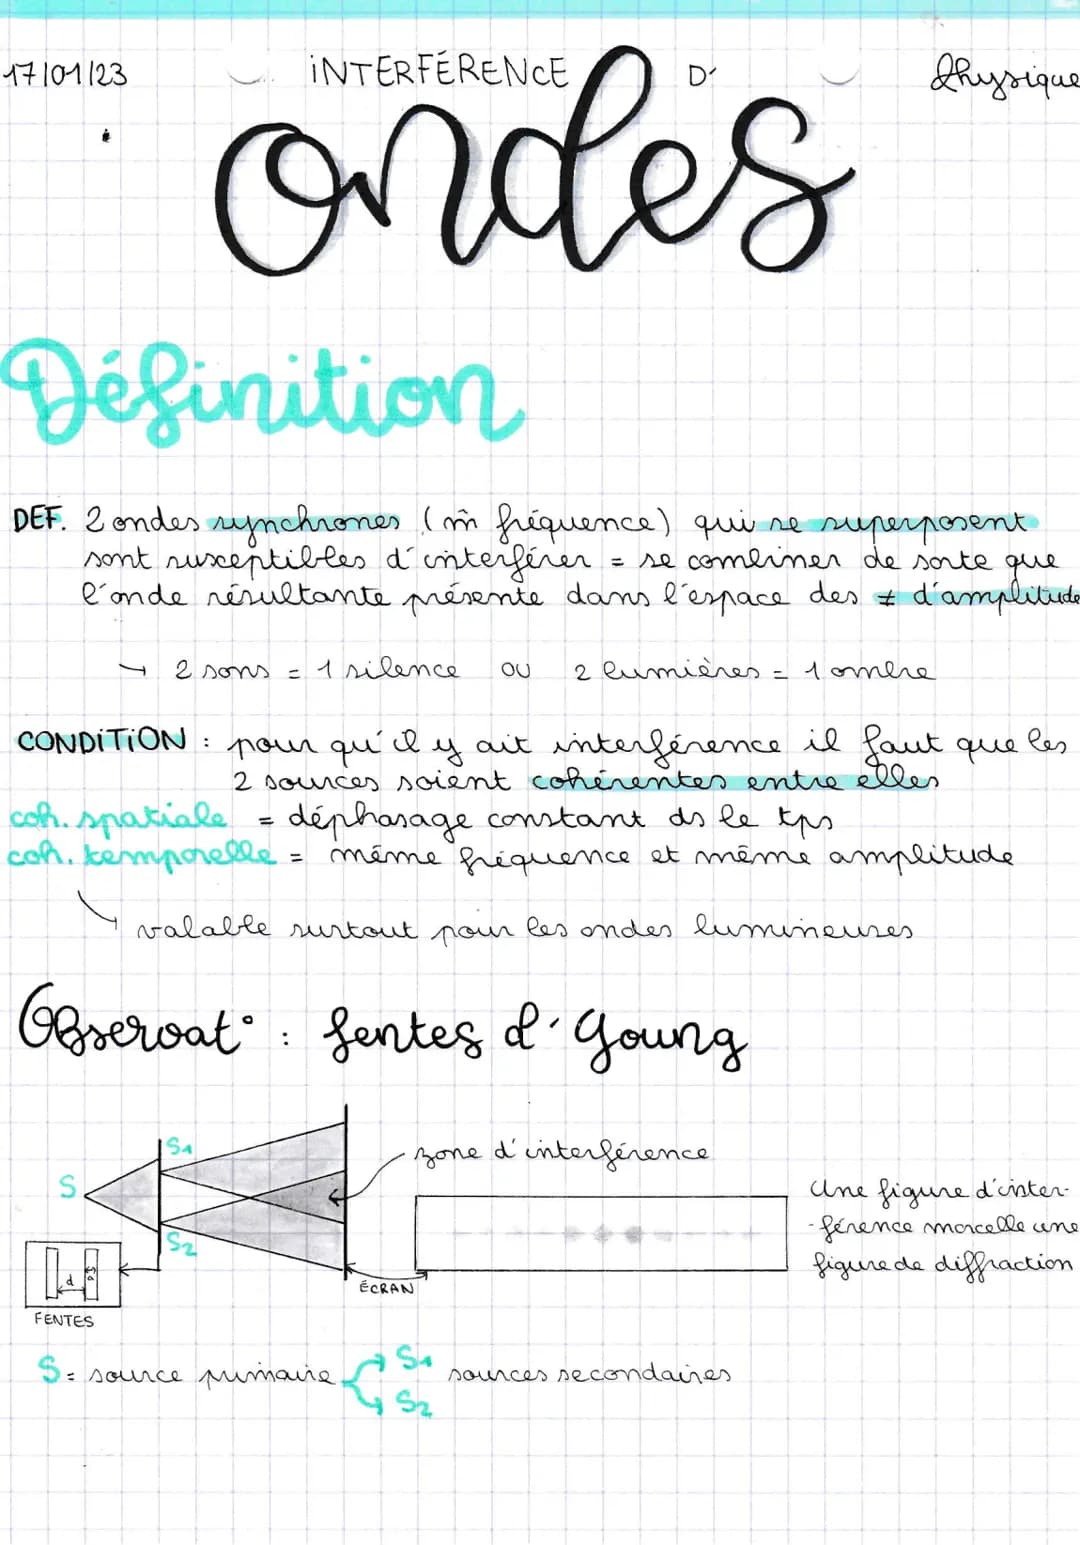 17/01/23 INTERFÉRENCE D' Physique
ondes
Définition
DEF. 2 ondes synchrones (m̂ fréquence) qui se superposent
sont susceptibles d'interférer = se combiner de sorte que
l'onde résultante présente dans l'espace des ≠ d'amplitude
→ 2 sons = 1 silence ou 2 lumières = 1 ombre
CONDITION : pour qu'il y ait interférence il faut que les
2 sources soient cohérentes entre elles
coh. spatiale = déphasage constant ds le tps
coh. temporelle = même fréquence et même amplitude
valable surtout pour les ondes lumineuses
Observat° : fentes d'Young
S1
zone d'interférence
S
Une figure d'inter-
-férence morcelle une
figure de diffraction
S2
d
a
ÉCRAN
FENTES
S = source primaire S1 sources secondaires
S2